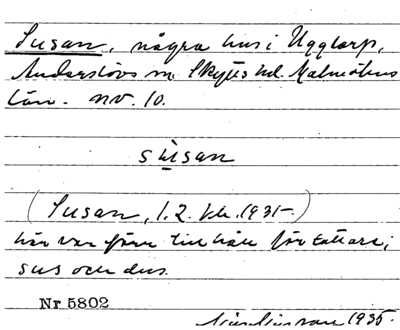 Susan, några hus i Uggtorp,
Anderslövs sn. Skytts hd. Malmöhus
län. nv. 10.
sụsan
(Susan, 1. 2. kk. 1935.)
här var förr tillhåll för tattare;
sus och dus.
Nr 5802
1935.